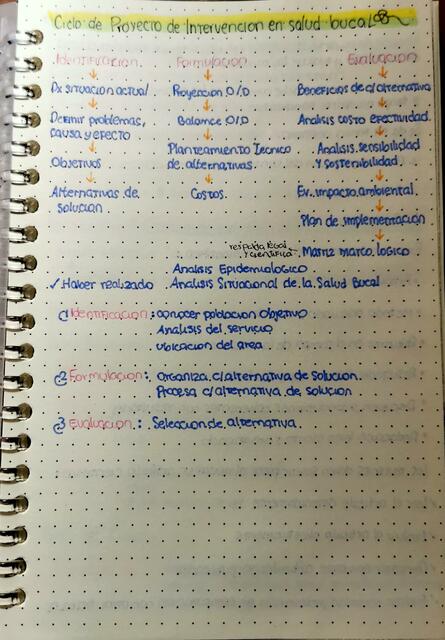 Ciclo de Proyecto de Intervencion en salud bucal
Identificacion Formulacion Evaluacion
Dx situacion actual Proyeccion O/D Beneficios de c/alternativa
Definir problemas, Balance O/D Analisis costo efectividad
causa y efecto
Planteamiento Tecnico Analisis sensibilidad
Objetivos de alternativas Y sostenibilidad
Alternativas de Costos Ev. impacto ambiental
solucion
Plan de implementacion
respaldo legal
y cientifico Matriz marco logico
Analisis Epidemiologico
✓ Haber realizado Analisis Situacional de la Salud Bucal
1 Identificacion: conocer poblacion objetivo
Analisis del servicio
ubicacion del area
2 Formulacion: Organiza c/alternativa de solucion.
Procesa c/alternativa de solucion
3 Evaluacion: Seleccion de alternativa.